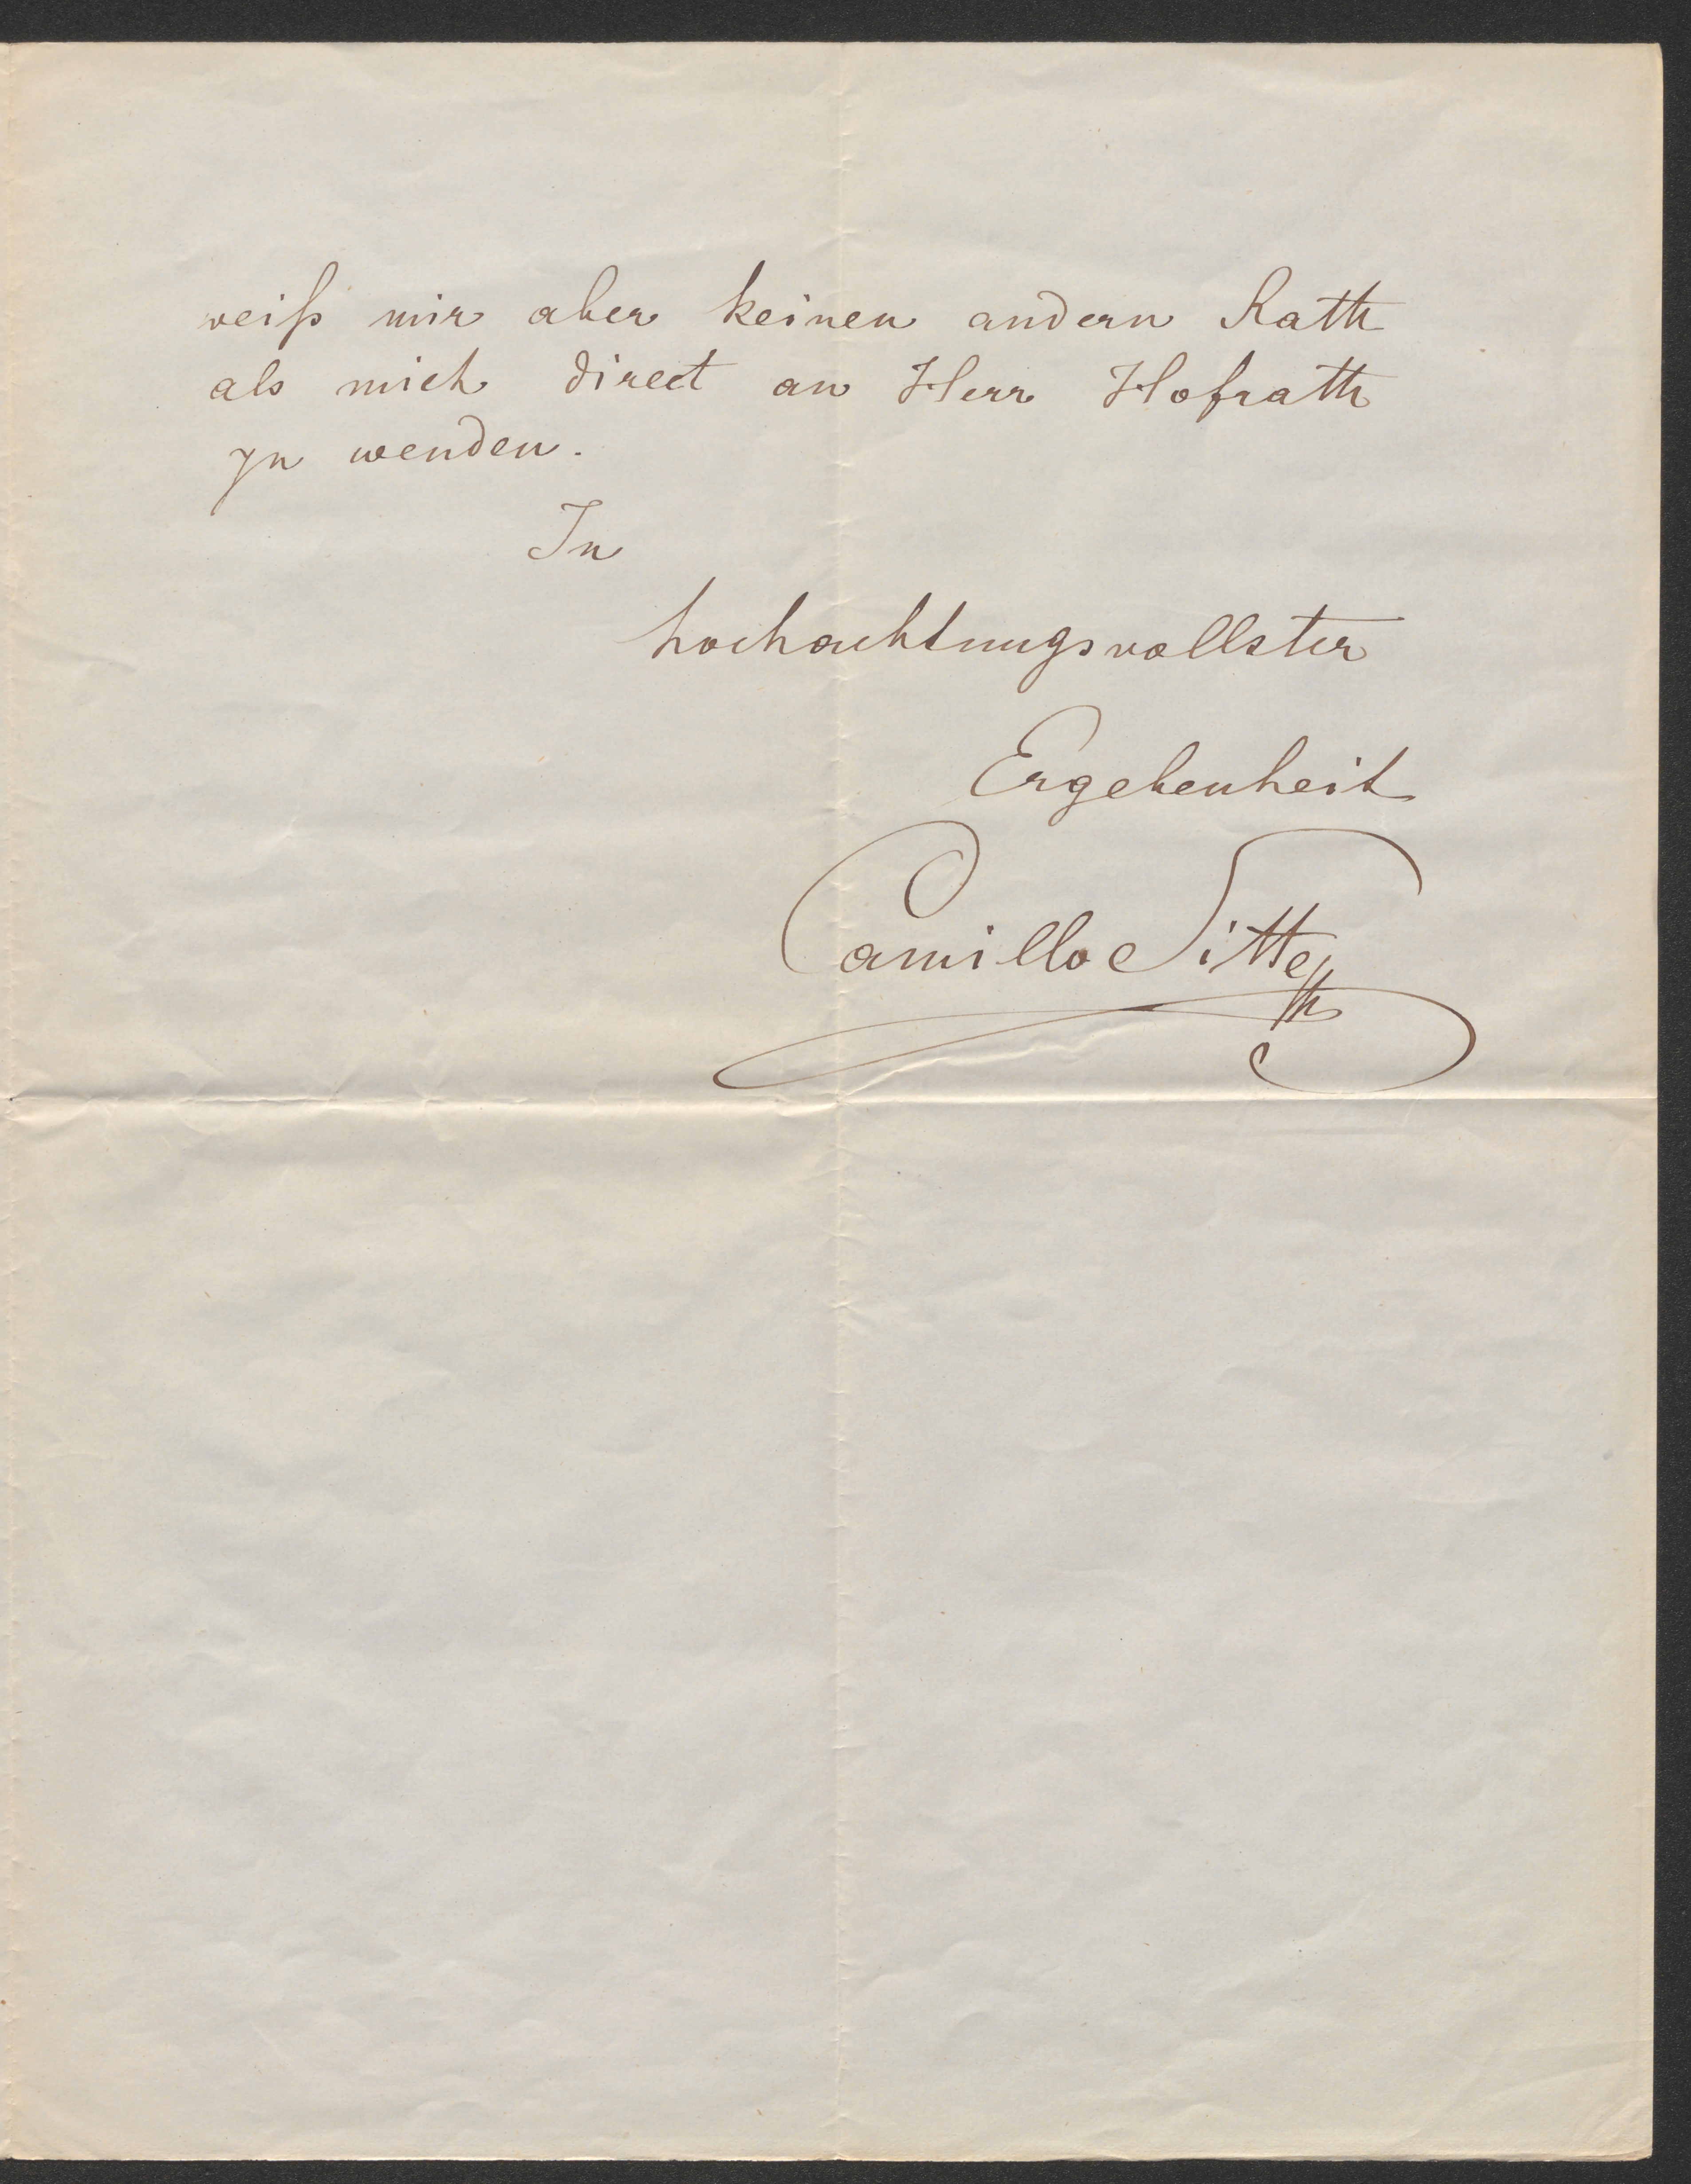 weiß mir aber keinen andern Rath
als mich direct an Herr Hofrath
zu wenden.
In
hochachtungsvollster
Ergebenheit
Camillo Sitte